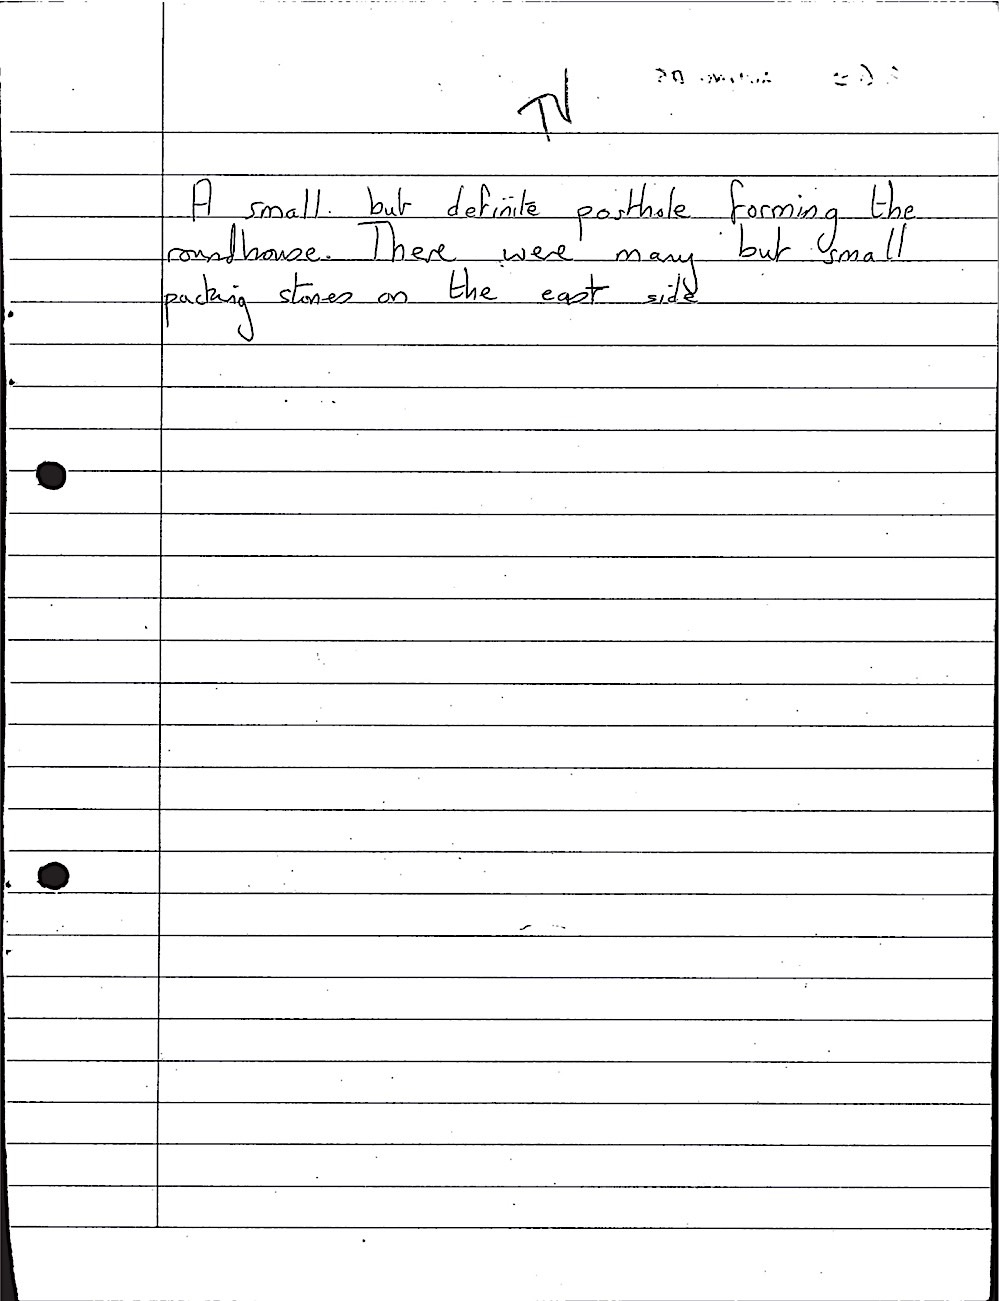 A small but definite posthole forming the
roundhouse. There were many but small
packing stones on the east side